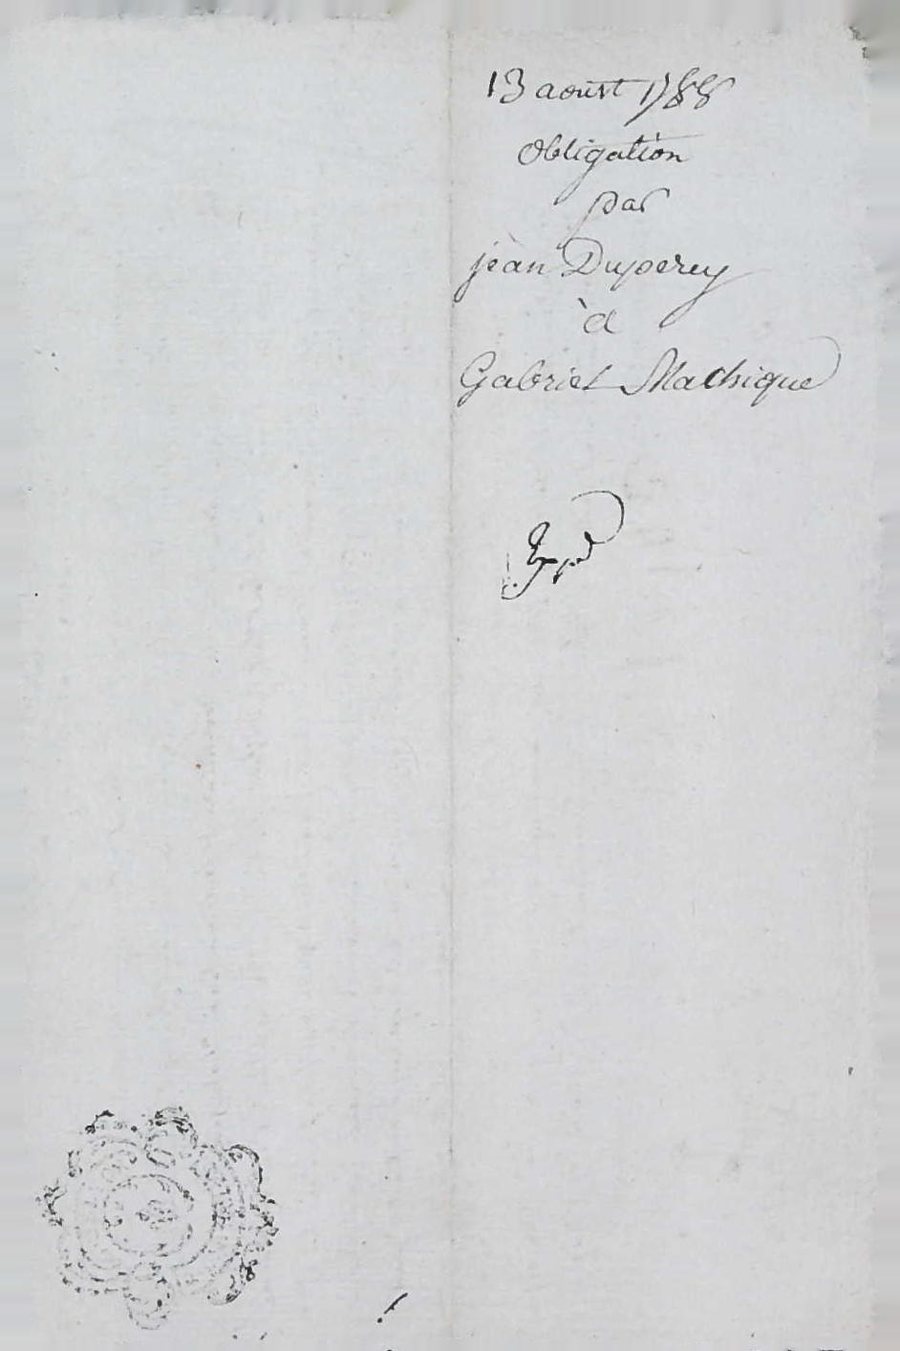 13 aoust 1788
Obligation
par
jean Duperey
à
Gabriel Machique
Expd